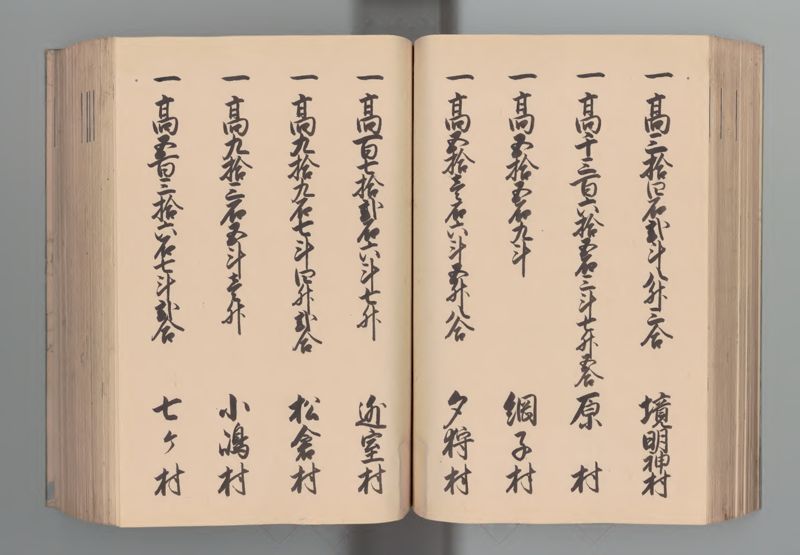 一 高三拾四石弐斗八升三合 境明神村
一 高千三百六拾五石三斗七升五合 原村
一 高五拾五石九斗 綱子村
一 高五拾壱石六斗五升八合 夕狩村
一 高百七拾弐石六斗七升 近室村
一 高九拾九石七斗四升弐合 松倉村
一 高九拾三石五斗壱升 小嶋村
一 高五百三拾六石七斗弐合 七ヶ村